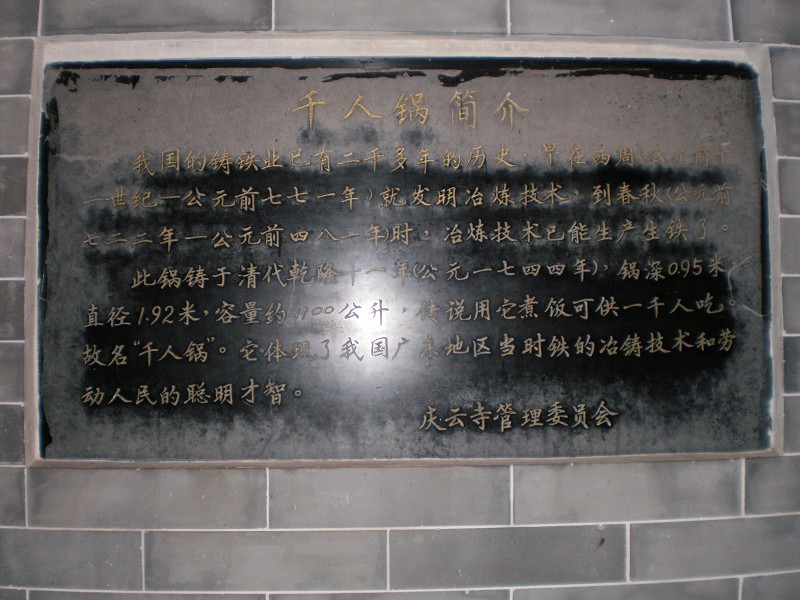 千人锅简介
我国的铸铁业已有二千多年的历史，早在西周（公元前十
一世纪一公元前七七一年）就发明冶炼技术，到春秋（公元前
七二二年一公元前四八一年）时，冶炼技术已能生产生铁了。
此锅铸于清代乾隆十一年（公元一七四四年），锅深0.95米，
直径1.92米，容量约1100公升，传说用它煮饭可供一千人吃。
故名“千人锅”。它体现了我国广东地区当时铁的冶铸技术和劳
动人民的聪明才智。
庆云寺管理委员会